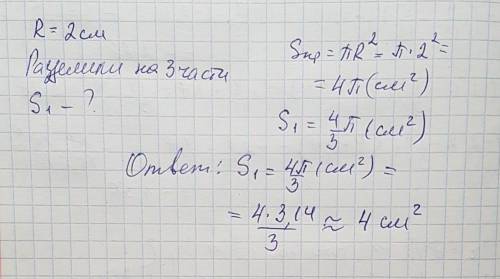 R = 2см
Разделили на 3 части
S₁ - ?
Sкр = πR² = π·2² =
= 4π (см²)
S₁ = 4/3 π (см²)
Ответ: S₁ = 4π/3 (см²) =
= 4·3,14/3 ≈ 4 см²